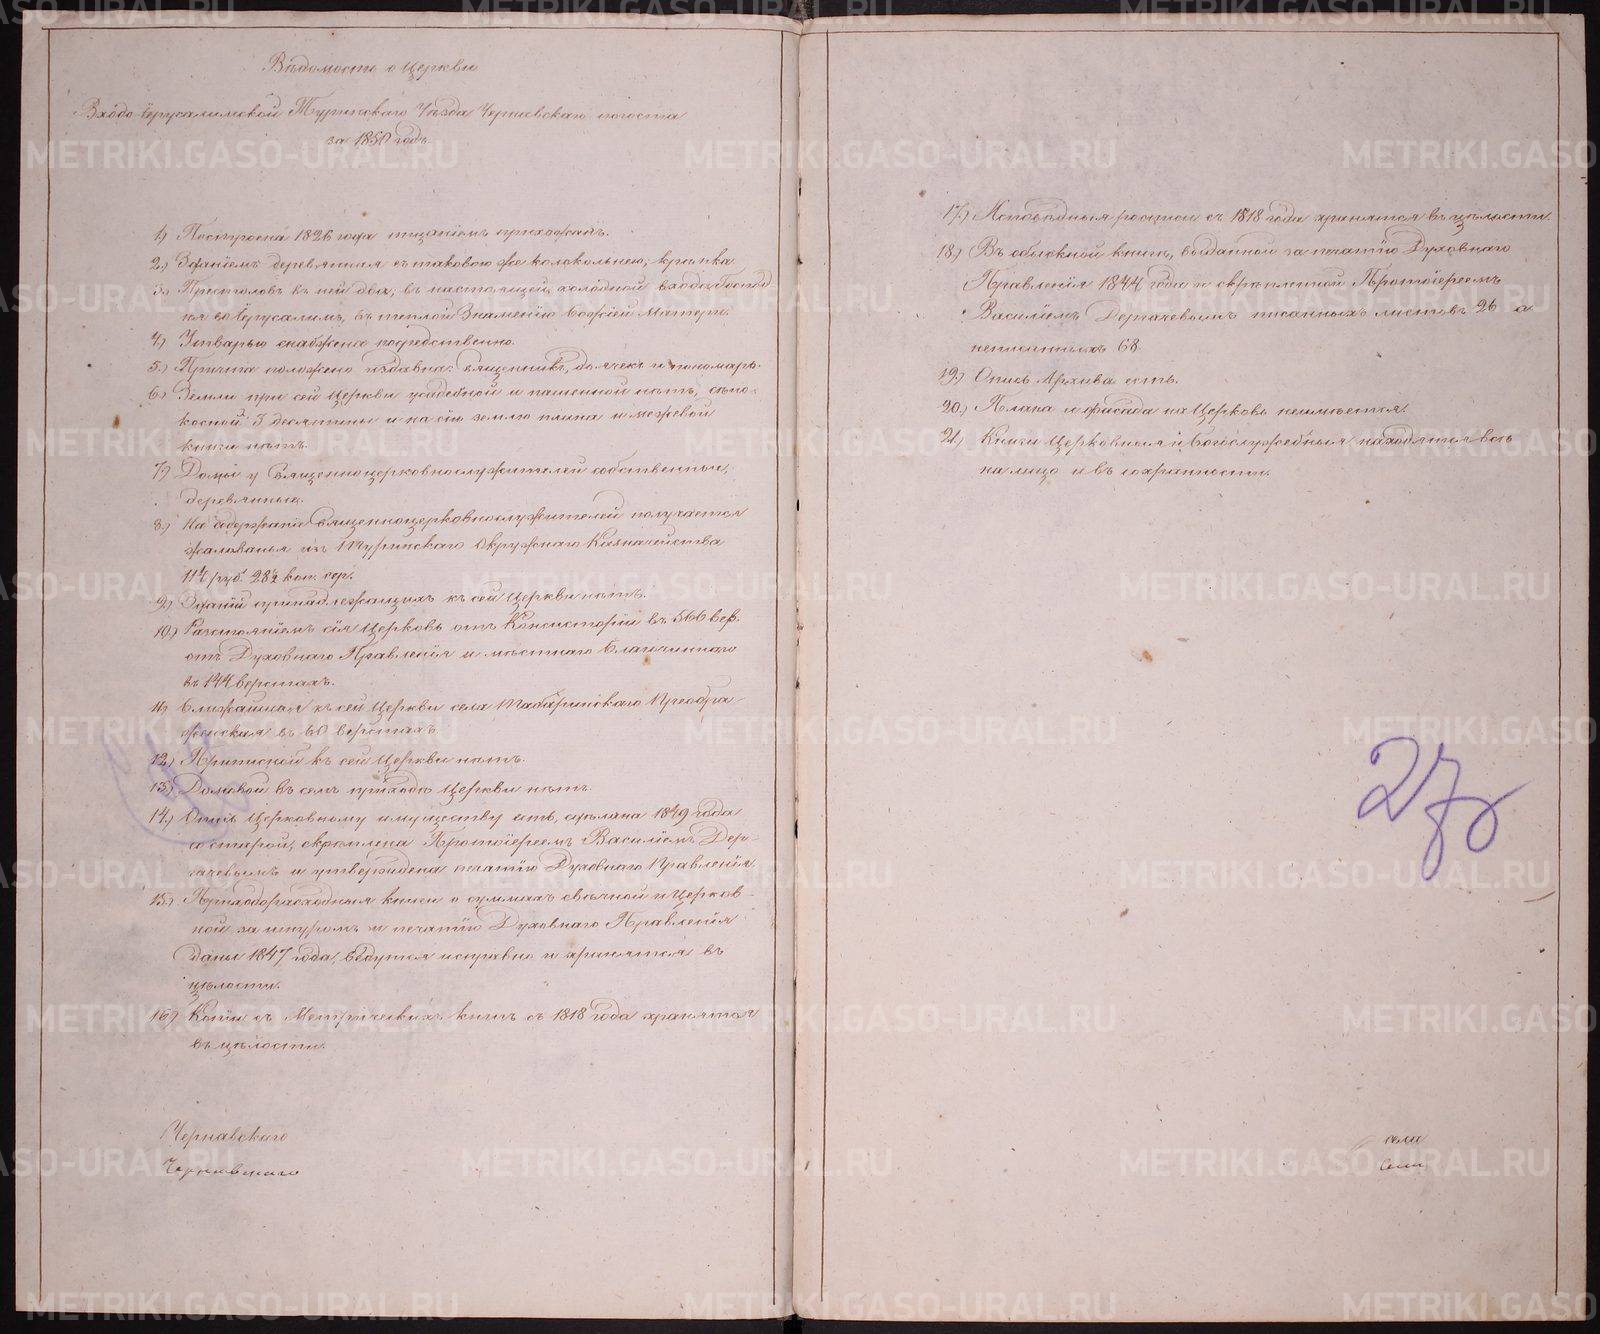 Вѣдомость о Церкви
Входо-Іерусалимской Туринскаго Уѣзда Чернавскаго погоста
за 1850 годъ.
1.) Построена 1826 года тщаніемъ прихожанъ.
2.) Зданіемъ деревянная съ таковою же колокольнею, крѣпка.
3.) Престоловъ въ ней два, въ настоящей холодной входа Господ-
ня во Іерусалимъ, въ теплой Знаменію Божіей Матери.
4.) Утварью снабжена посредственно.
5.) Причта положено издавна: Священникъ, дьячекъ и пономарь.
6.) Земли при сей Церкви усадебной и пашенной нѣтъ, сѣно-
косной 3 десятины и на сію землю плана и межевой
книги нѣтъ.
7.) Домы у Священноцерковнослужителей собственные,
деревянные.
8.) На содержаніе Священноцерковнослужителей получается
жалованья изъ Туринскаго Окружнаго Казначейства
114 руб. 28½ коп. сер.
9.) Зданій принадлежащихъ къ сей Церкви нѣтъ.
10.) Разстояніемъ сія Церковь отъ Консисторіи въ 566 вер.
отъ Духовнаго Правленія и мѣстнаго Благочиннаго
въ 144 верстахъ.
11.) Ближайшая къ сей Церкви села Табаринскаго Преобра-
женская въ 60 верстахъ.
12.) Приписной къ сей Церкви нѣтъ.
13.) Домовой въ семъ приходѣ Церкви нѣтъ.
14.) Опись Церковному имуществу есть, сдѣлана 1849 года
со старой, скрѣплена Протоіереемъ Василіемъ Дер-
гачевымъ и утверждена печатію Духовнаго Правленія.
15.) Приходорасходныя книги о суммахъ свѣчной и Церков-
ной за шнуромъ и печатію Духовнаго Правленія
даны 1847 года, ведутся исправно и хранятся въ
цѣлости.
16.) Копіи съ Метрическихъ книгъ съ 1818 года хранятся
въ цѣлости.
Чернавскаго
Чернавскаго
17.) Исповѣдныя росписи съ 1818 года хранятся въ цѣлости.
18.) Въ обыскной книгѣ, выданной за печатію Духовнаго
Правленія 1844 года и скрѣпленной Протоіереемъ
Василіемъ Дергачевымъ писанныхъ листовъ 26 а
неписанныхъ 68.
19.) Опись Архива есть.
20.) Плана и фасада на Церковь неимѣется.
21.) Книги Церковныя и Богослужебныя находятся всѣ
на лицо и въ сохранности.
села
села
METRIKI.GASO-URAL.RU